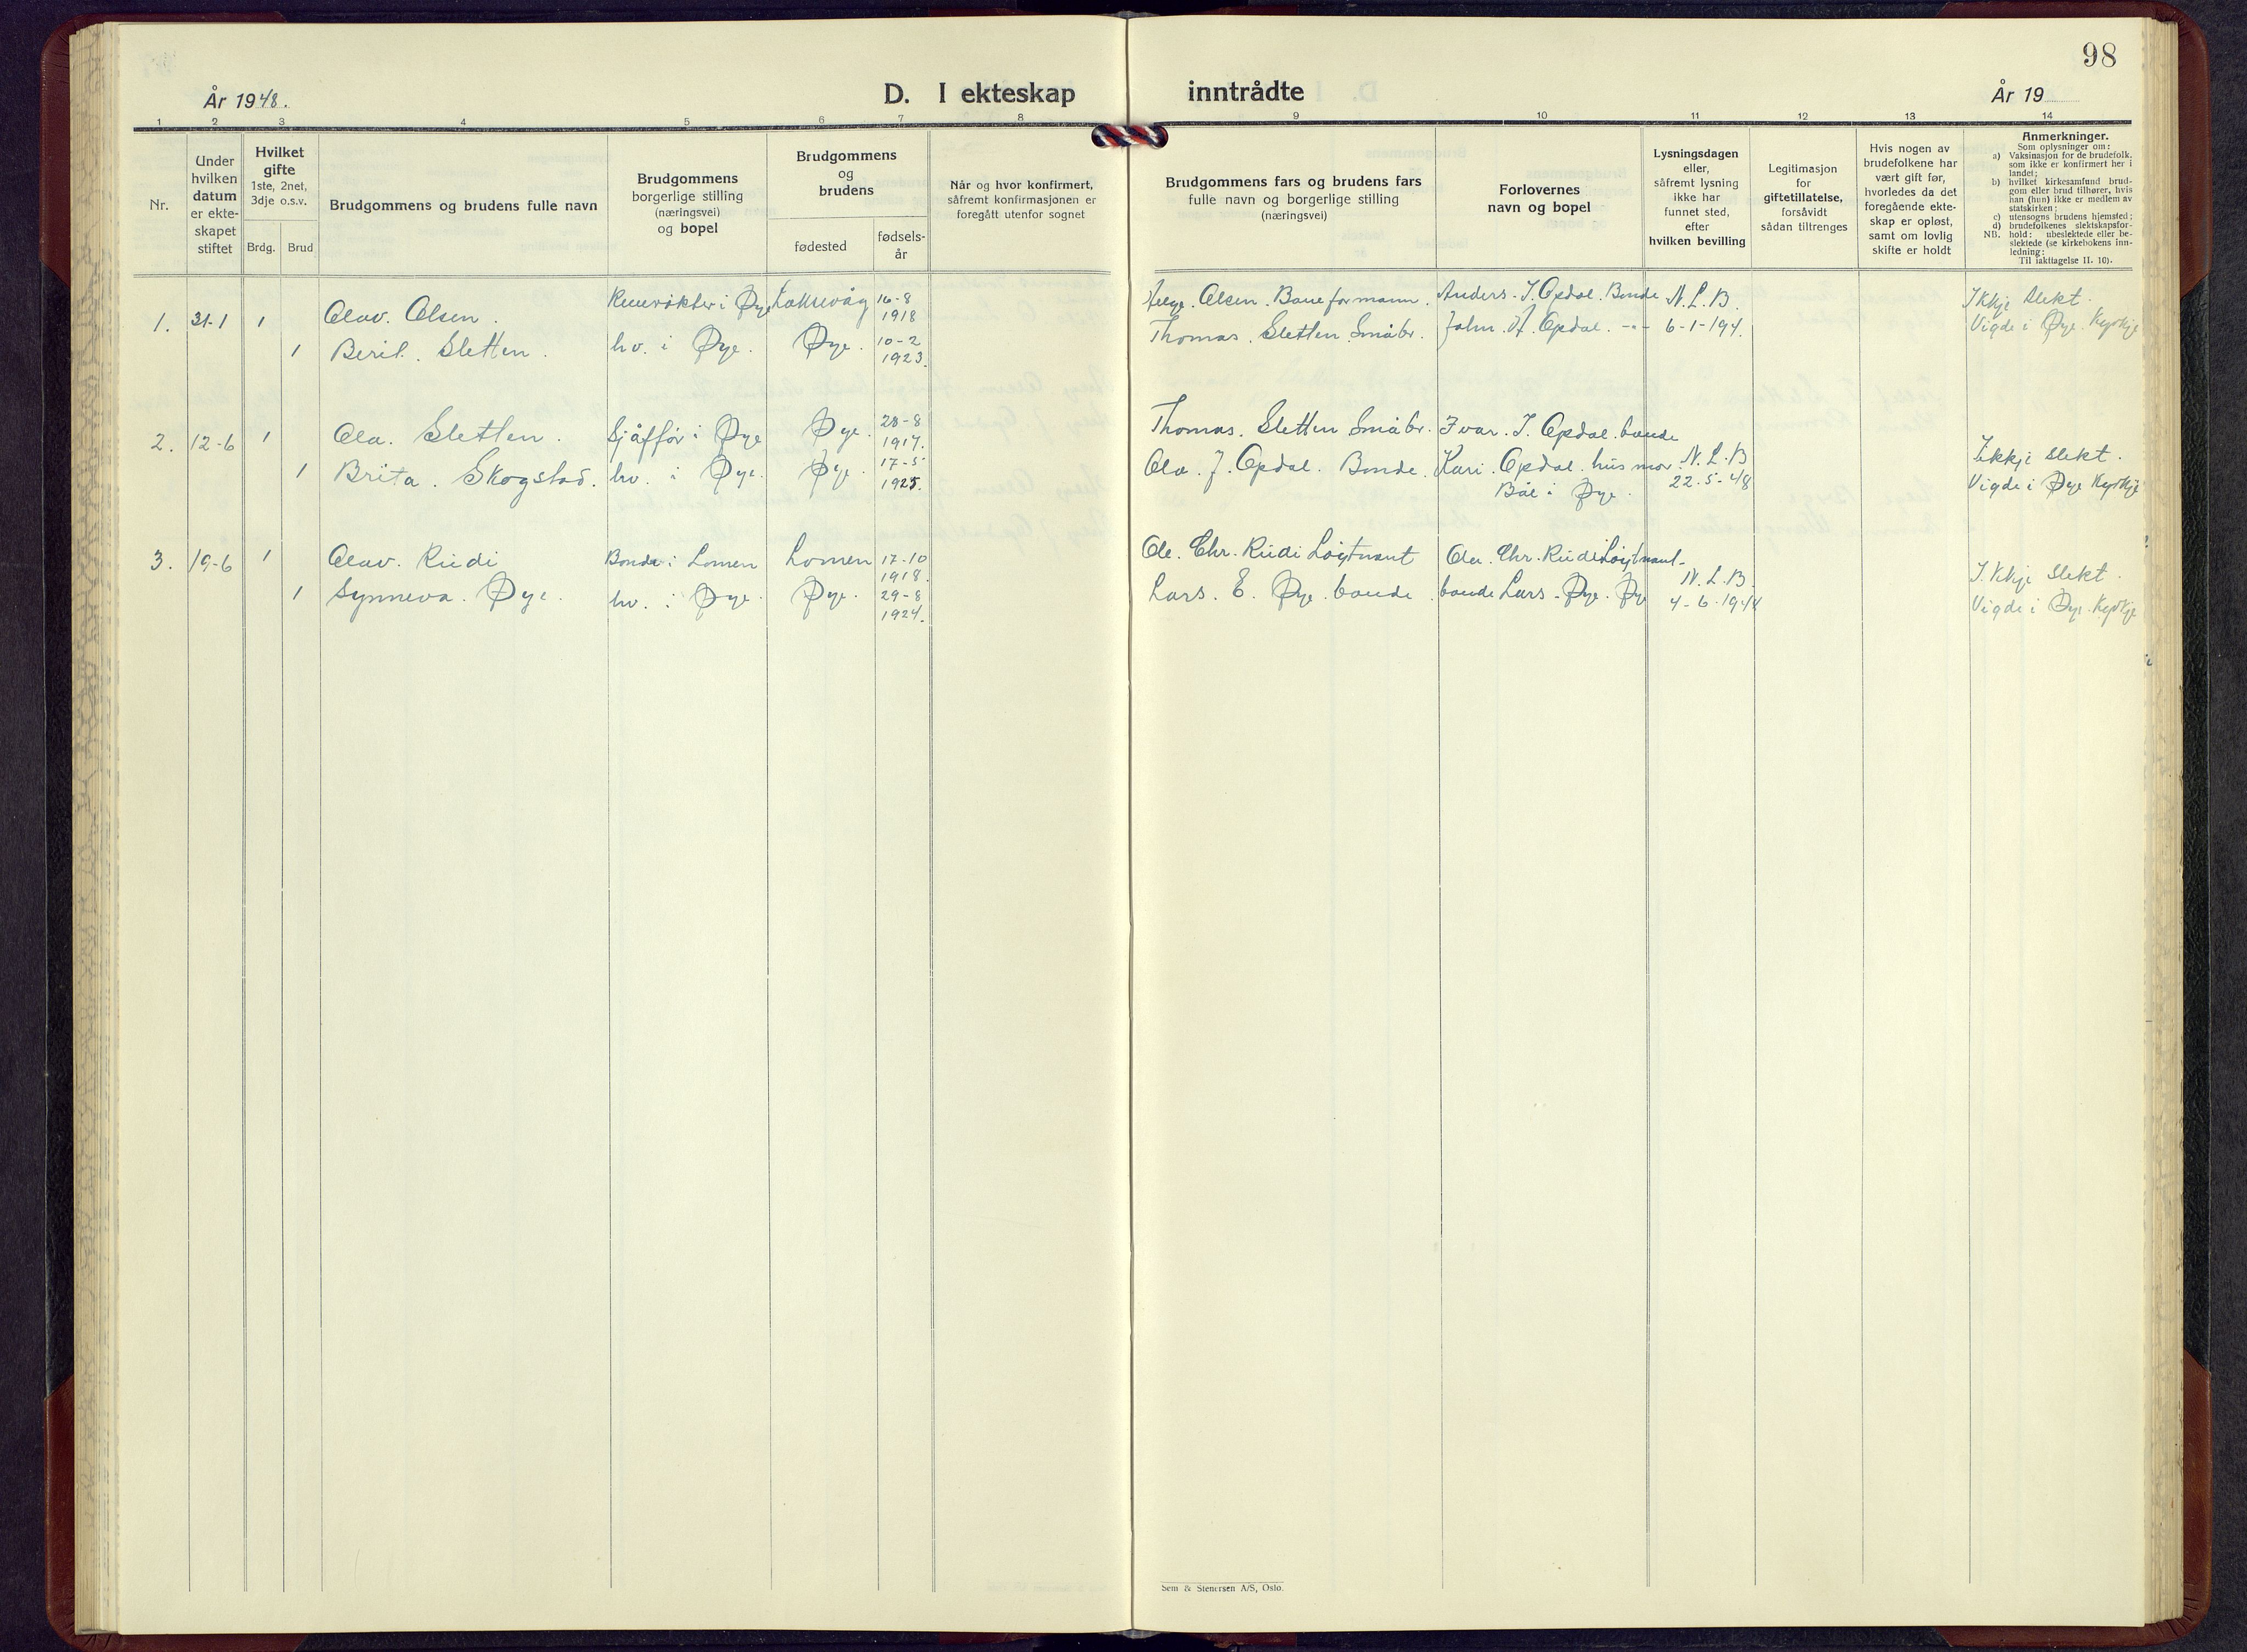 98
År 1948.
D. I ekteskap inntrådte
År 19
1 2 3 4 5 6 7 8 9 10 11 12 13 14
Nr.
Under
hvilken
datum
er ekte-
skapet
stiftet
Hvilket
gifte
1ste, 2net,
3dje o.s.v.
Brdg. Brud
Brudgommens og brudens fulle navn
Brudgommens
borgerlige stilling
(næringsvei)
og bopel
Brudgommens
og
brudens
fødested
fødsels-
år
Når og hvor konfirmert,
såfremt konfirmasjonen er
foregått utenfor sognet
Brudgommens fars og brudens fars
fulle navn og borgerlige stilling
(næringsvei)
Forlovernes
navn og bopel
Lysningsdagen
eller,
såfremt lysning
ikke har
funnet sted,
efter
hvilken bevilling
Legitimasjon
for
giftetillatelse,
forsåvidt
sådan tiltrenges
Hvis nogen av
brudefolkene har
vært gift før,
hvorledes da det
foregående ekte-
skap er opløst,
samt om lovlig
skifte er holdt
Anmerkninger.
Som oplysninger om:
a) Vaksinasjon for de brudefolk.
som ikke er konfirmert her i
landet;
b) hvilket kirkesamfund brud-
gom eller brud tilhører, hvis
han (hun) ikke er medlem av
statskirken;
c) utensogns brudens hjemsted;
d) brudefolkenes slektskapsfor-
NB. hold: ubeslektede eller be-
slektede (se kirkebokens inn-
ledning:
Til iakttagelse II. 10).
1. 31-1 1 Olav. Olsen. i Øye Laksevåg 16-8
1918
Helge. Olsen. Baneformann. Anders. I. Opdal. Bonde N.L.B.
Ikkje slekt.
1 Berit. Sletten. hv. i Øye. Øye. 10-2
1923.
Thomas. Sletten. Småbr. John. Opdal. -"- 6-1-194.
Vigde i Øye. Kyrkje
2. 12-6 1 Ola. Sletten. Sjåffør i Øye Øye. 28-8
1917.
Thomas. Sletten Småbr. Ivar. I. Opdal. bonde
1 Brita. Skogstad. hv. i Øye. Øye. 17-5
1925.
Ola. J. Opdal. Bonde. Kari. Opdal. husmor. N.L.B
Båe i Øye. 22.5-48
Ikkje slekt.
Vigde i Øye Kyrkje
3. 19-6 1 Olav. Rudi Bonde i Lomen Lomen 17-10
1918.
Ole. Chr. Rudi Løytnant Ole. Chr. Rudi Løytnant.
1 Synneva. Øye. hv. i Øye. Øye. 29-8
1924.
Lars. E. Øye. bonde. bonde Lars. Øye. Øye
N.L.B.
4-6-1948
Ikkje slekt.
Vigde i Øye. Kyrkje
Sem & Stenersen A/S, Oslo.